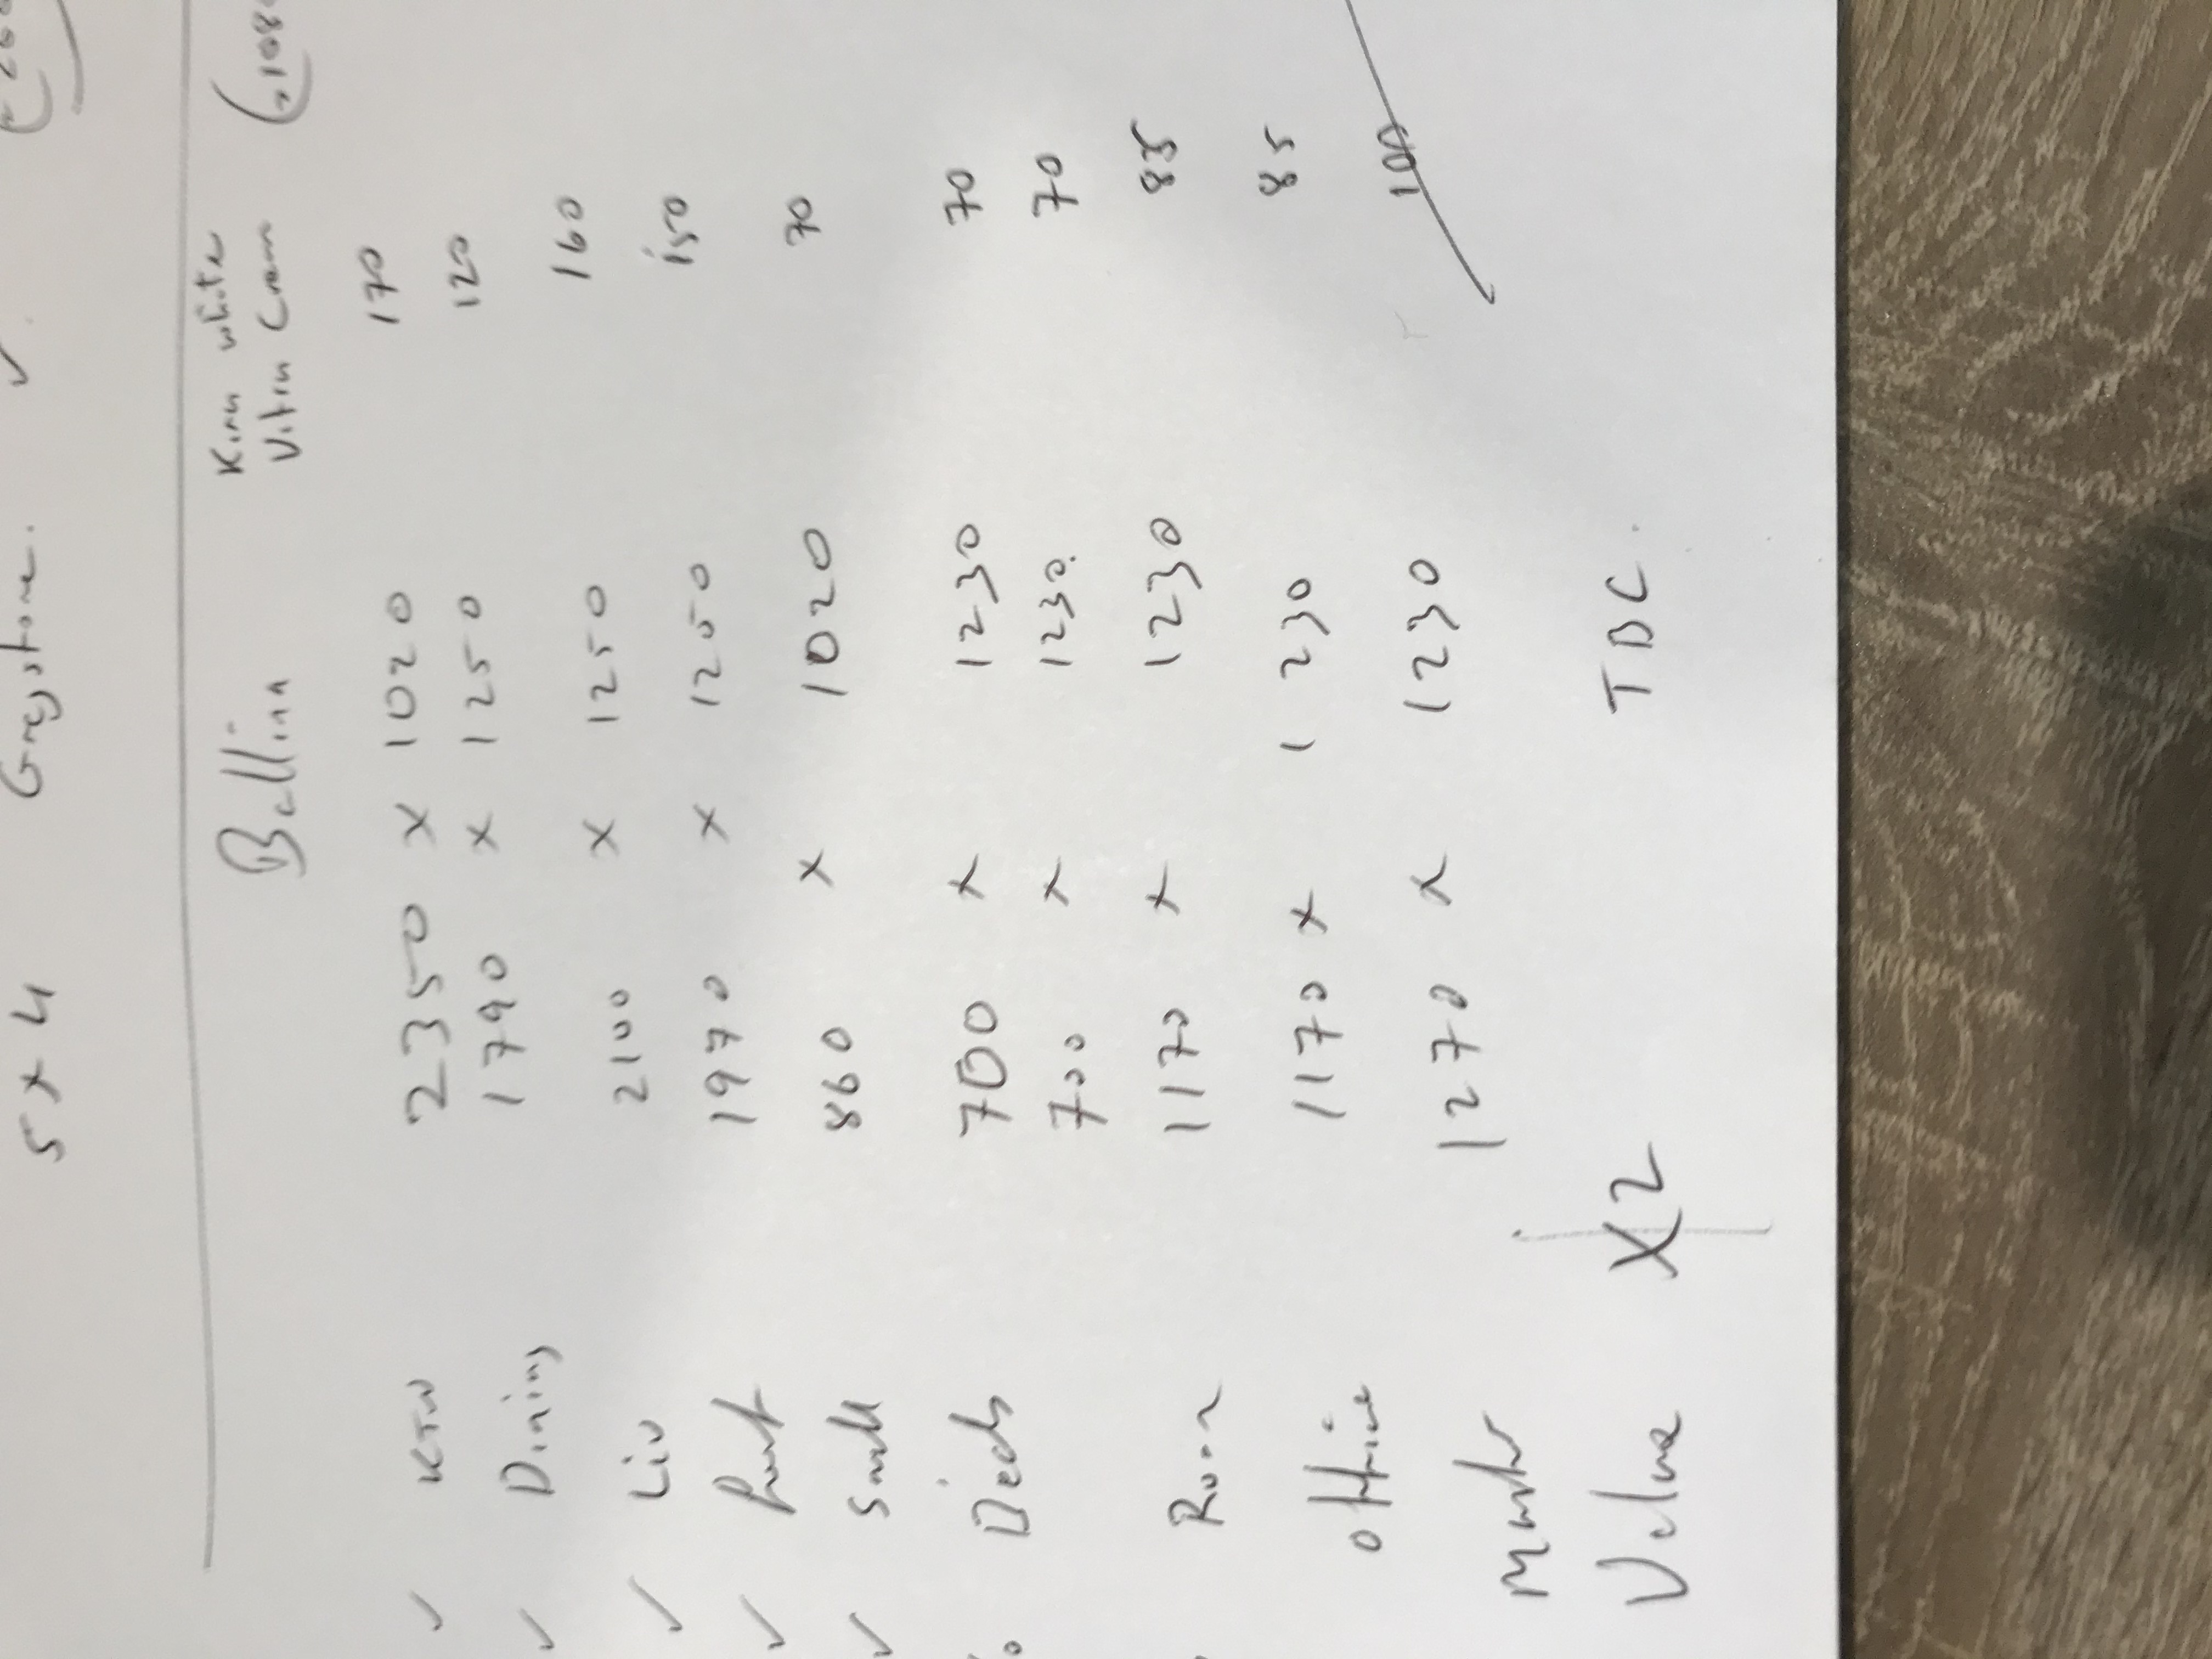 5 x 4 Greystone. ✓
Ballina
white
Vitra Cream
✓ KTN 2350 x 1020 170
✓ Dining 1790 x 1250 120
✓ Liv 2100 x 1250 160
✓ 1970 x 1250 150
✓ Small 860 x 1020 70
700 x 1230 70
700 x 1230. 70
Room 1170 x 1230 85
Office 1170 x 1230 85
1270 x 1230 100
X2 TBC.